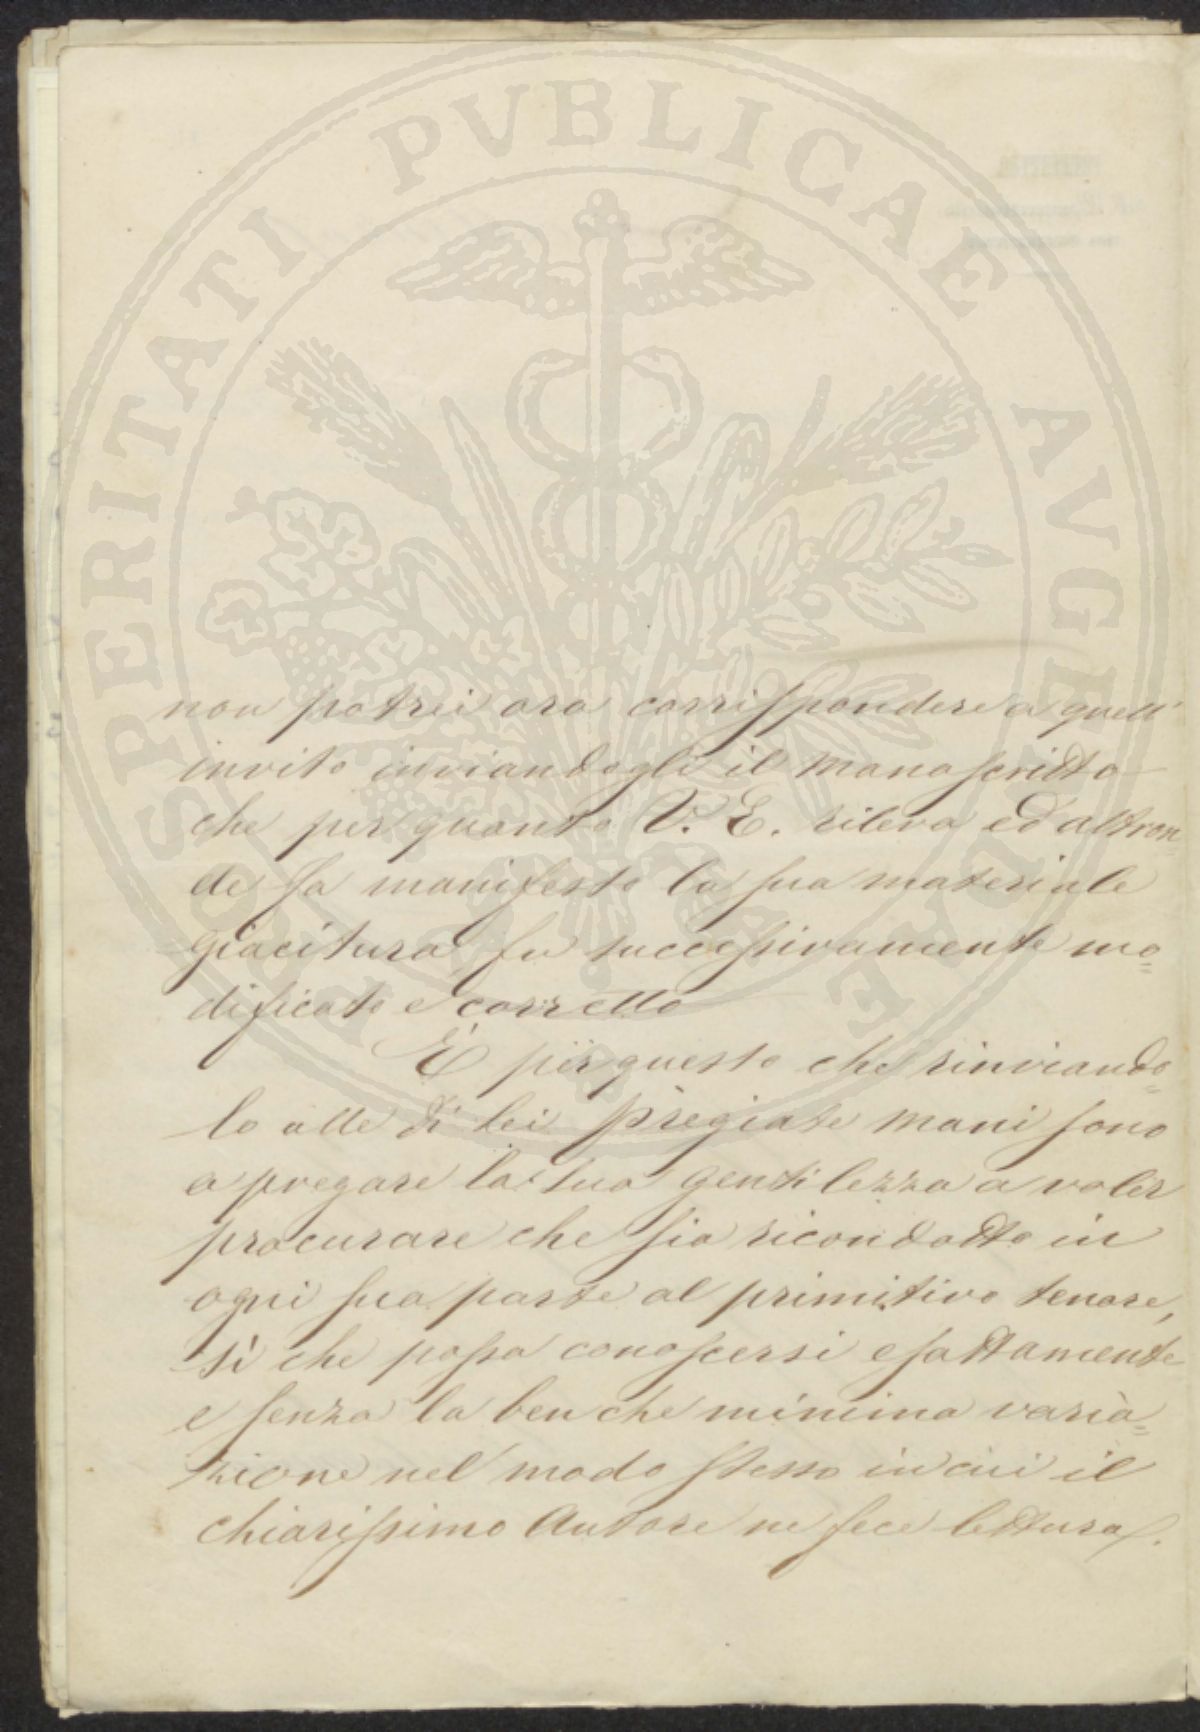 PROSPERITATI PVBLICAE AVGENDAE
non potrei ora corrispondere a quell'
invito inviandogli il manoscritto
che per quanto V. E. rileva ed altron=
de fa manifesto la sua materiale
giacitura fu successivamente mo=
dificato e corretto
È per questo che rinviando=
lo alle di lei pregiate mani sono
a pregare la sua gentilezza a voler
procurare che sia ricondotto in
ogni sua parte al primitivo tenore,
sì che possa conoscersi esattamente
e senza la benche minima varia=
zione nel modo stesso in cui il
chiarissimo Autore ne fece lettura.